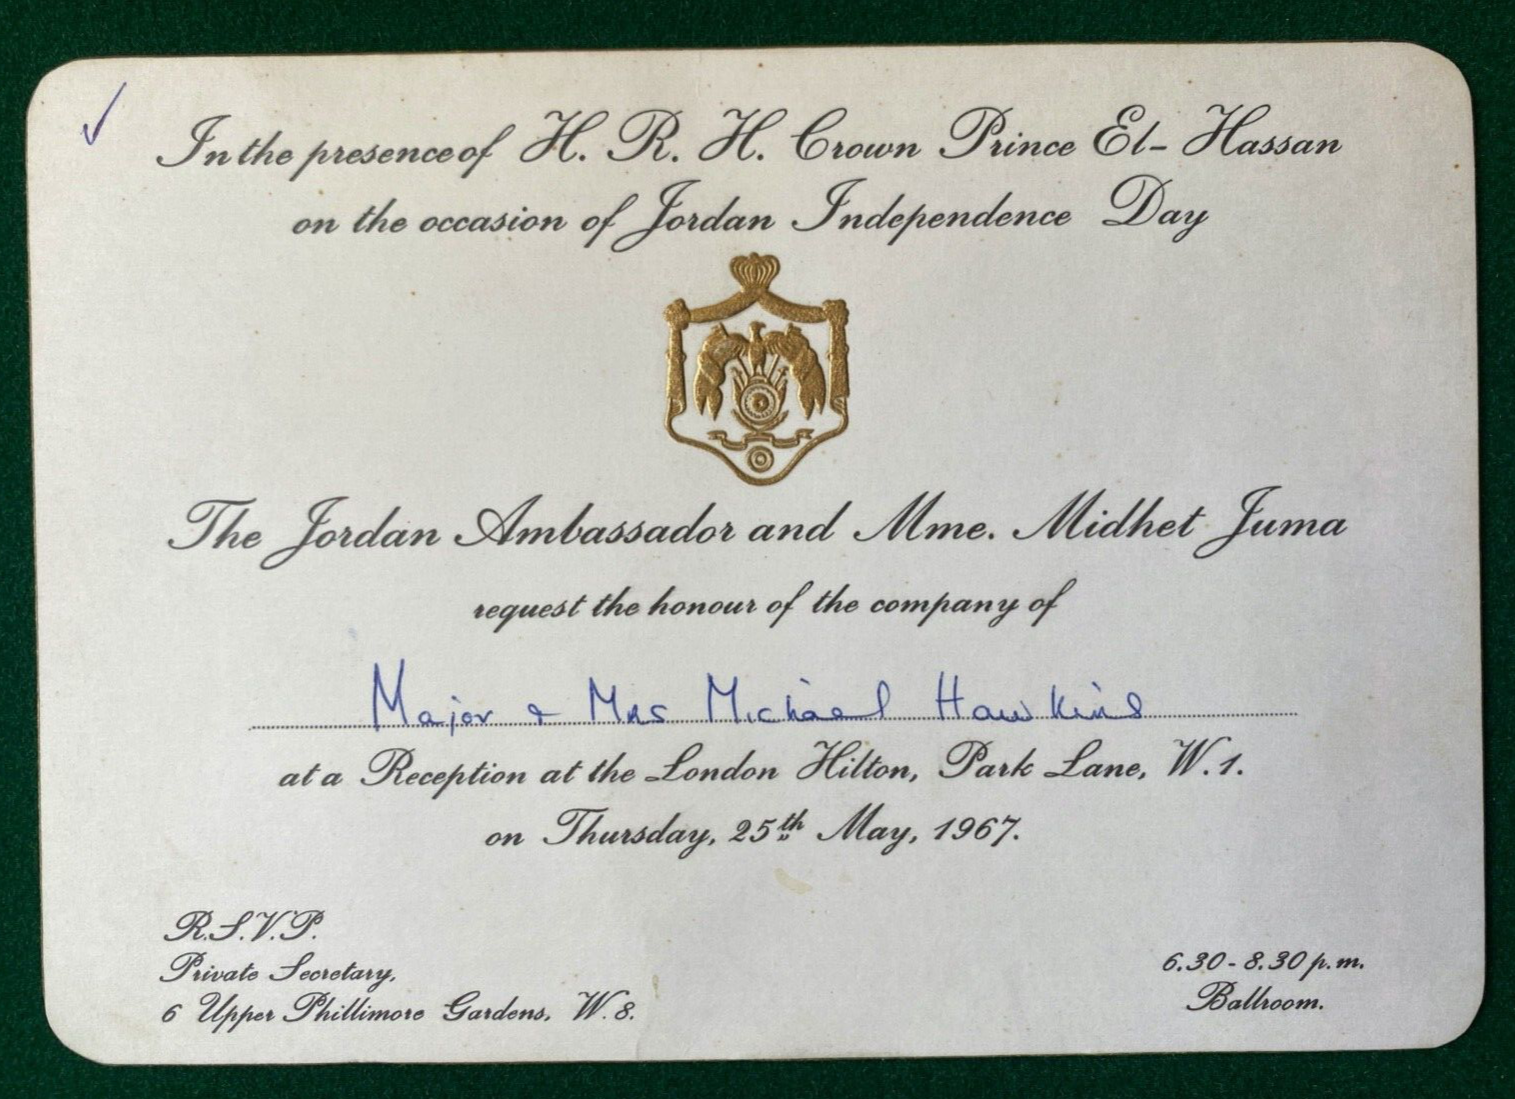 In the presence of H. R. H. Crown Prince El-Hassan
on the occasion of Jordan Independence Day
The Jordan Ambassador and Mme. Midhet Juma
request the honour of the company of
Major & Mrs Michael Hawkins
at a Reception at the London Hilton, Park Lane, W.1.
on Thursday, 25th May, 1967.
R.S.V.P.
Private Secretary,
6 Upper Phillimore Gardens, W.8.
6.30 - 8.30 p.m.
Ballroom.